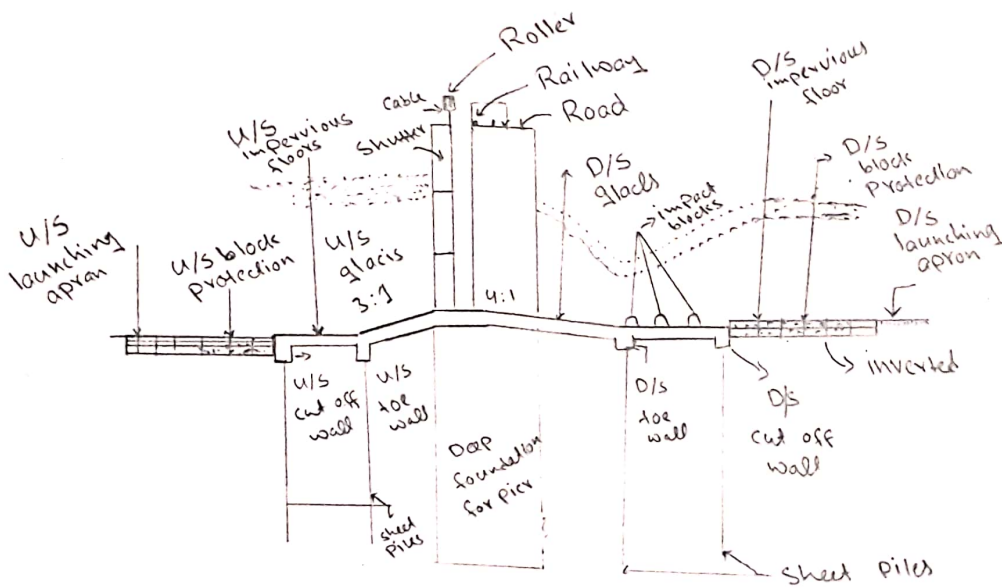 Roller
Railway
Road
Cable
Shutter
U/S
impervious
floors
D/S
impervious
floor
D/S
block
Protection
D/S
launching
apron
D/S
glacis
impact
blocks
U/S
launching
apron
U/S block
protection
U/S
glacis
3:1
4:1
inverted
U/S
cut off
wall
U/S
toe
wall
Deep
foundation
for pier
D/S
toe
wall
D/S
cut off
wall
sheet
Piles
Sheet Piles